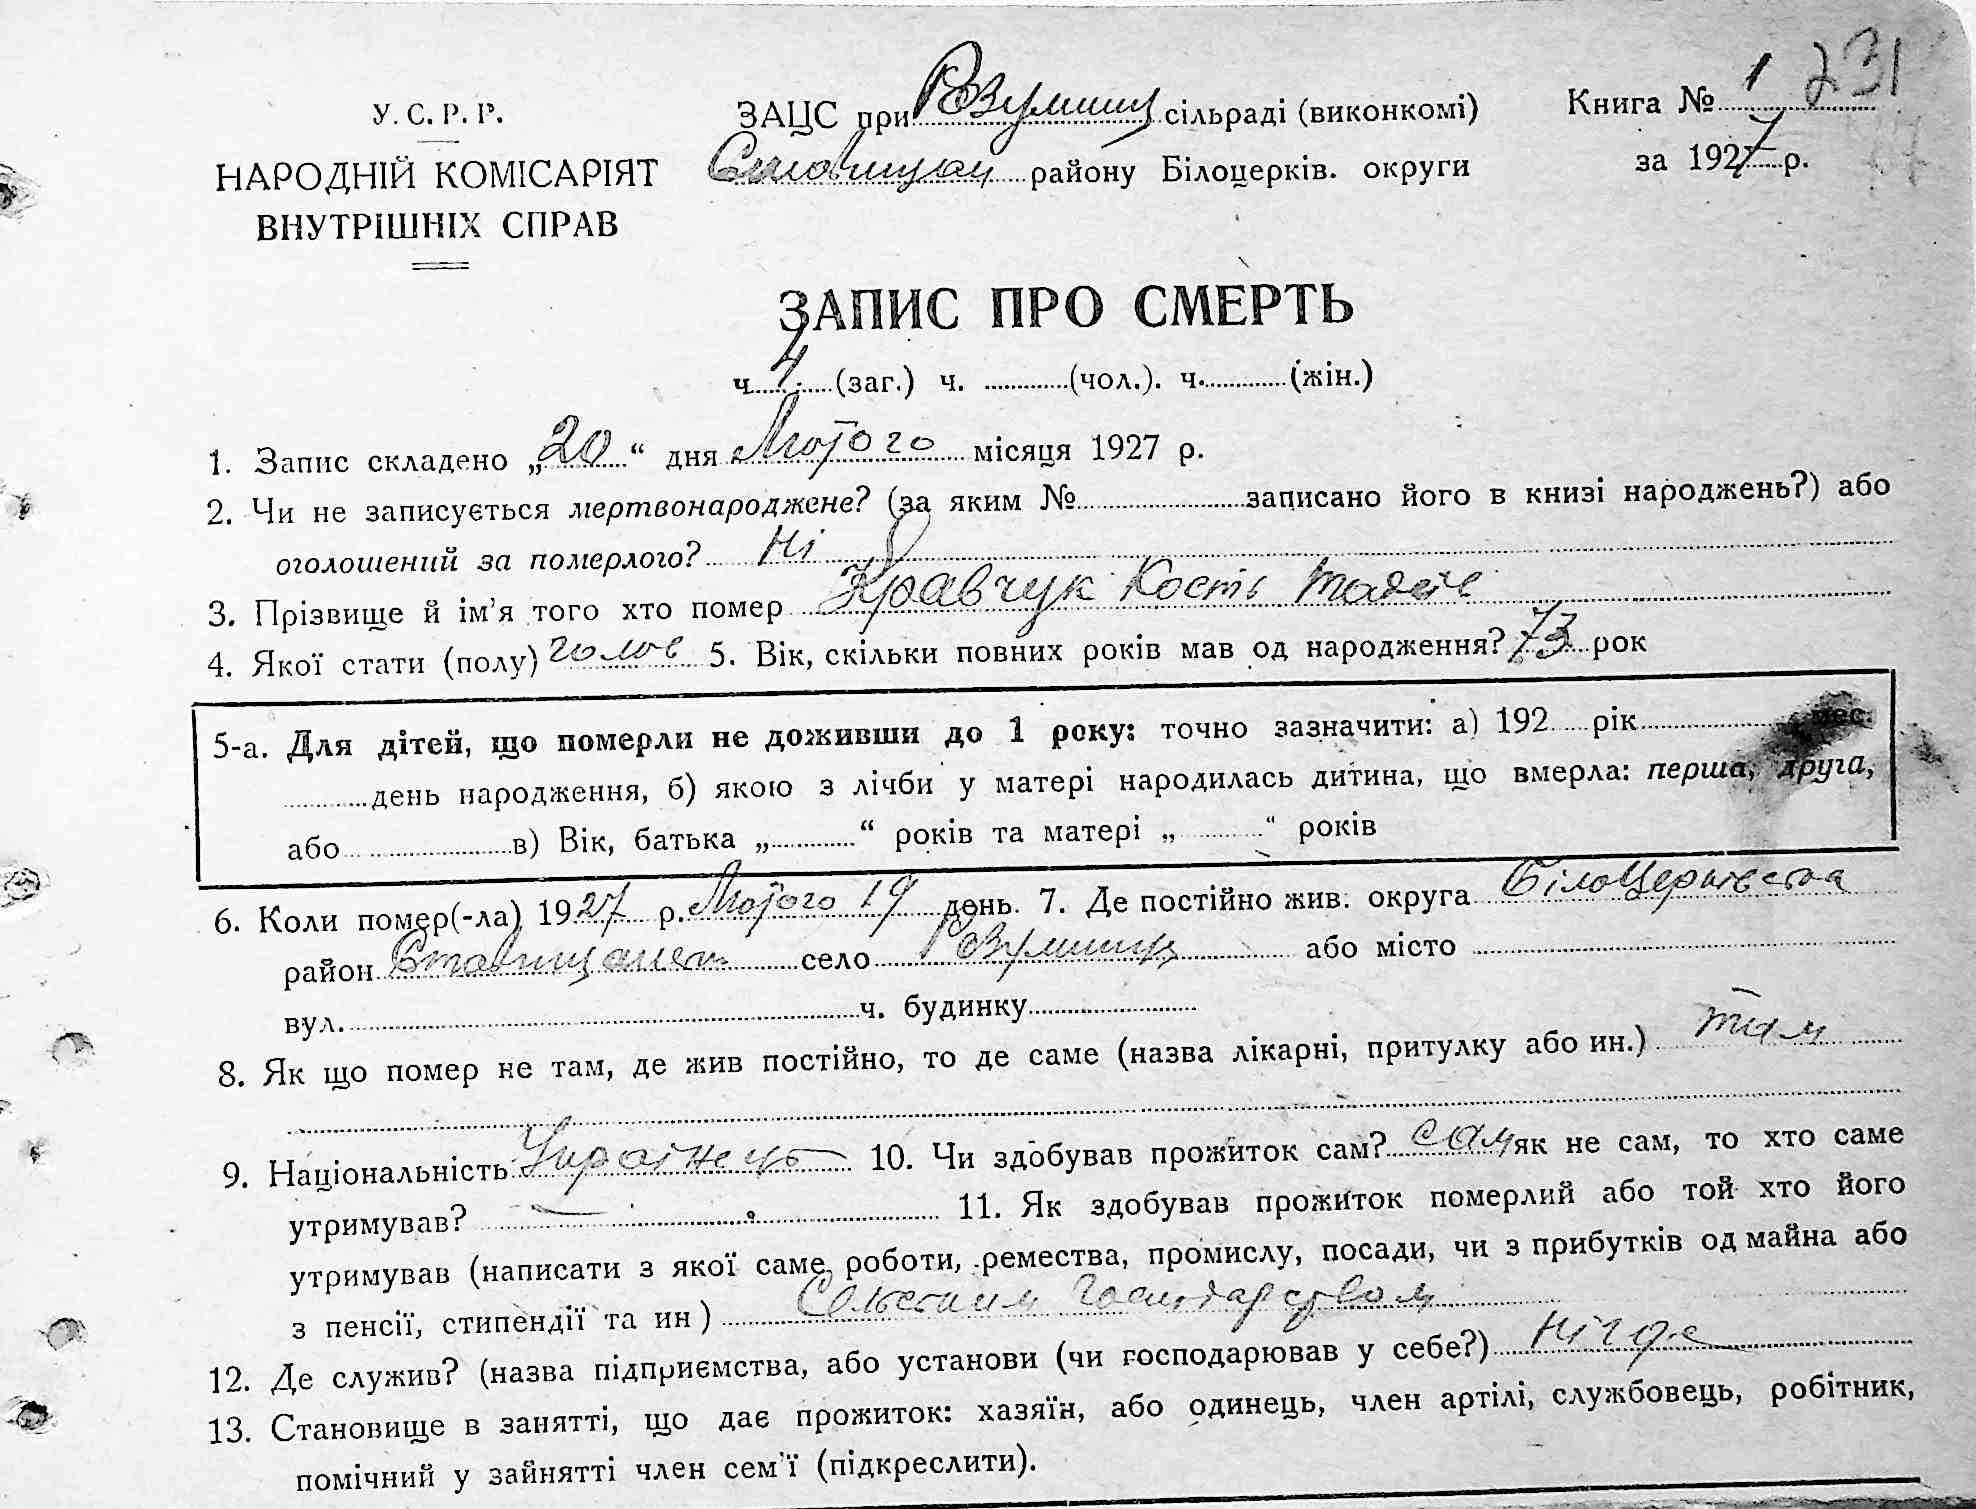 231
У. С. Р. Р.
НАРОДНІЙ КОМІСАРІЯТ
ВНУТРІШНІХ СПРАВ
ЗАЦС при сільраді (виконкомі)
району Білоцерків. округи
Книга № 1
за 1927 р.
ЗАПИС ПРО СМЕРТЬ
ч. 4 (заг.) ч. (чол.). ч. (жін.)
1. Запис складено „20“ дня Лютого місяця 1927 р.
2. Чи не записується мертвонароджене? (за яким № записано його в книзі народжень?) або
оголошений за померлого? Ні
3. Прізвище й ім’я того хто помер Кравчук Кость
4. Якої стати (полу) 5. Вік, скільки повних років мав од народження? 73 рок
5-а. Для дітей, що померли не доживши до 1 року: точно зазначити: а) 192 рік мес.
день народження, б) якою з лічби у матері народилась дитина, що вмерла: перша, друга,
або в) Вік, батька „ “ років та матері „ “ років
6. Коли помер(-ла) 1927 р. Лютого 19 день. 7. Де постійно жив: округа Білоцерківська
район село або місто
вул. ч. будинку
8. Як що помер не там, де жив постійно, то де саме (назва лікарні, притулку або ин.) там
9. Національність Українець 10. Чи здобував прожиток сам? сам як не сам, то хто саме
утримував? — 11. Як здобував прожиток померлий або той хто його
утримував (написати з якої саме роботи, ремества, промислу, посади, чи з прибутків од майна або
з пенсії, стипендії та ин) Сельским Господарством
12. Де служив? (назва підприємства, або установи (чи господарював у себе?) Нігде
13. Становище в занятті, що дає прожиток: хазяїн, або одинець, член артілі, службовець, робітник,
помічний у зайнятті член сем’ї (підкреслити).